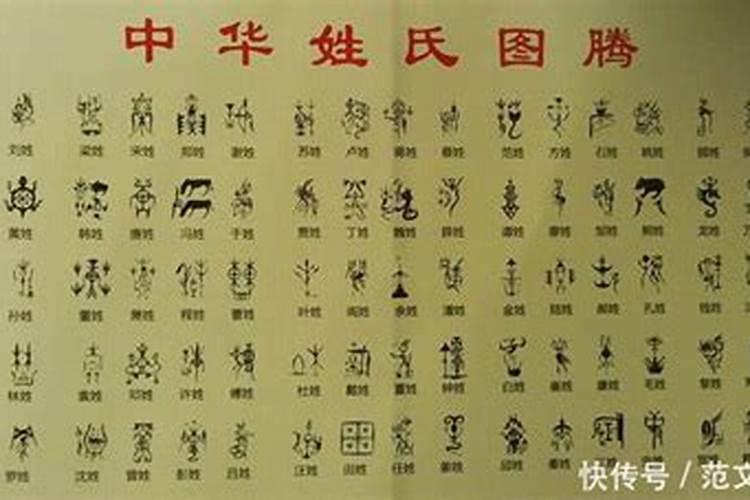 中华姓氏图腾
刘姓 梁姓 宋姓 郑姓 谢姓 苏姓 卢姓 蒋姓 蔡姓 范姓 方姓 石姓 姚姓
韩姓 唐姓 冯姓 于姓 贾姓 丁姓 魏姓 薛姓 谭姓 廖姓 邹姓 熊姓 龙姓 万
孙姓 董姓 萧姓 程姓 曹姓 叶姓 阎姓 余姓 潘姓 金姓 陆姓 郝姓 孔姓 钱姓
林姓 袁姓 邓姓 许姓 傅姓 杜姓 戴姓 夏姓 钟姓 白姓 崔姓 康姓 毛姓 黎姓
罗姓 沈姓 曾姓 彭姓 吕姓 汪姓 田姓 任姓 姜姓 邱姓 秦姓
快传号 / 范文